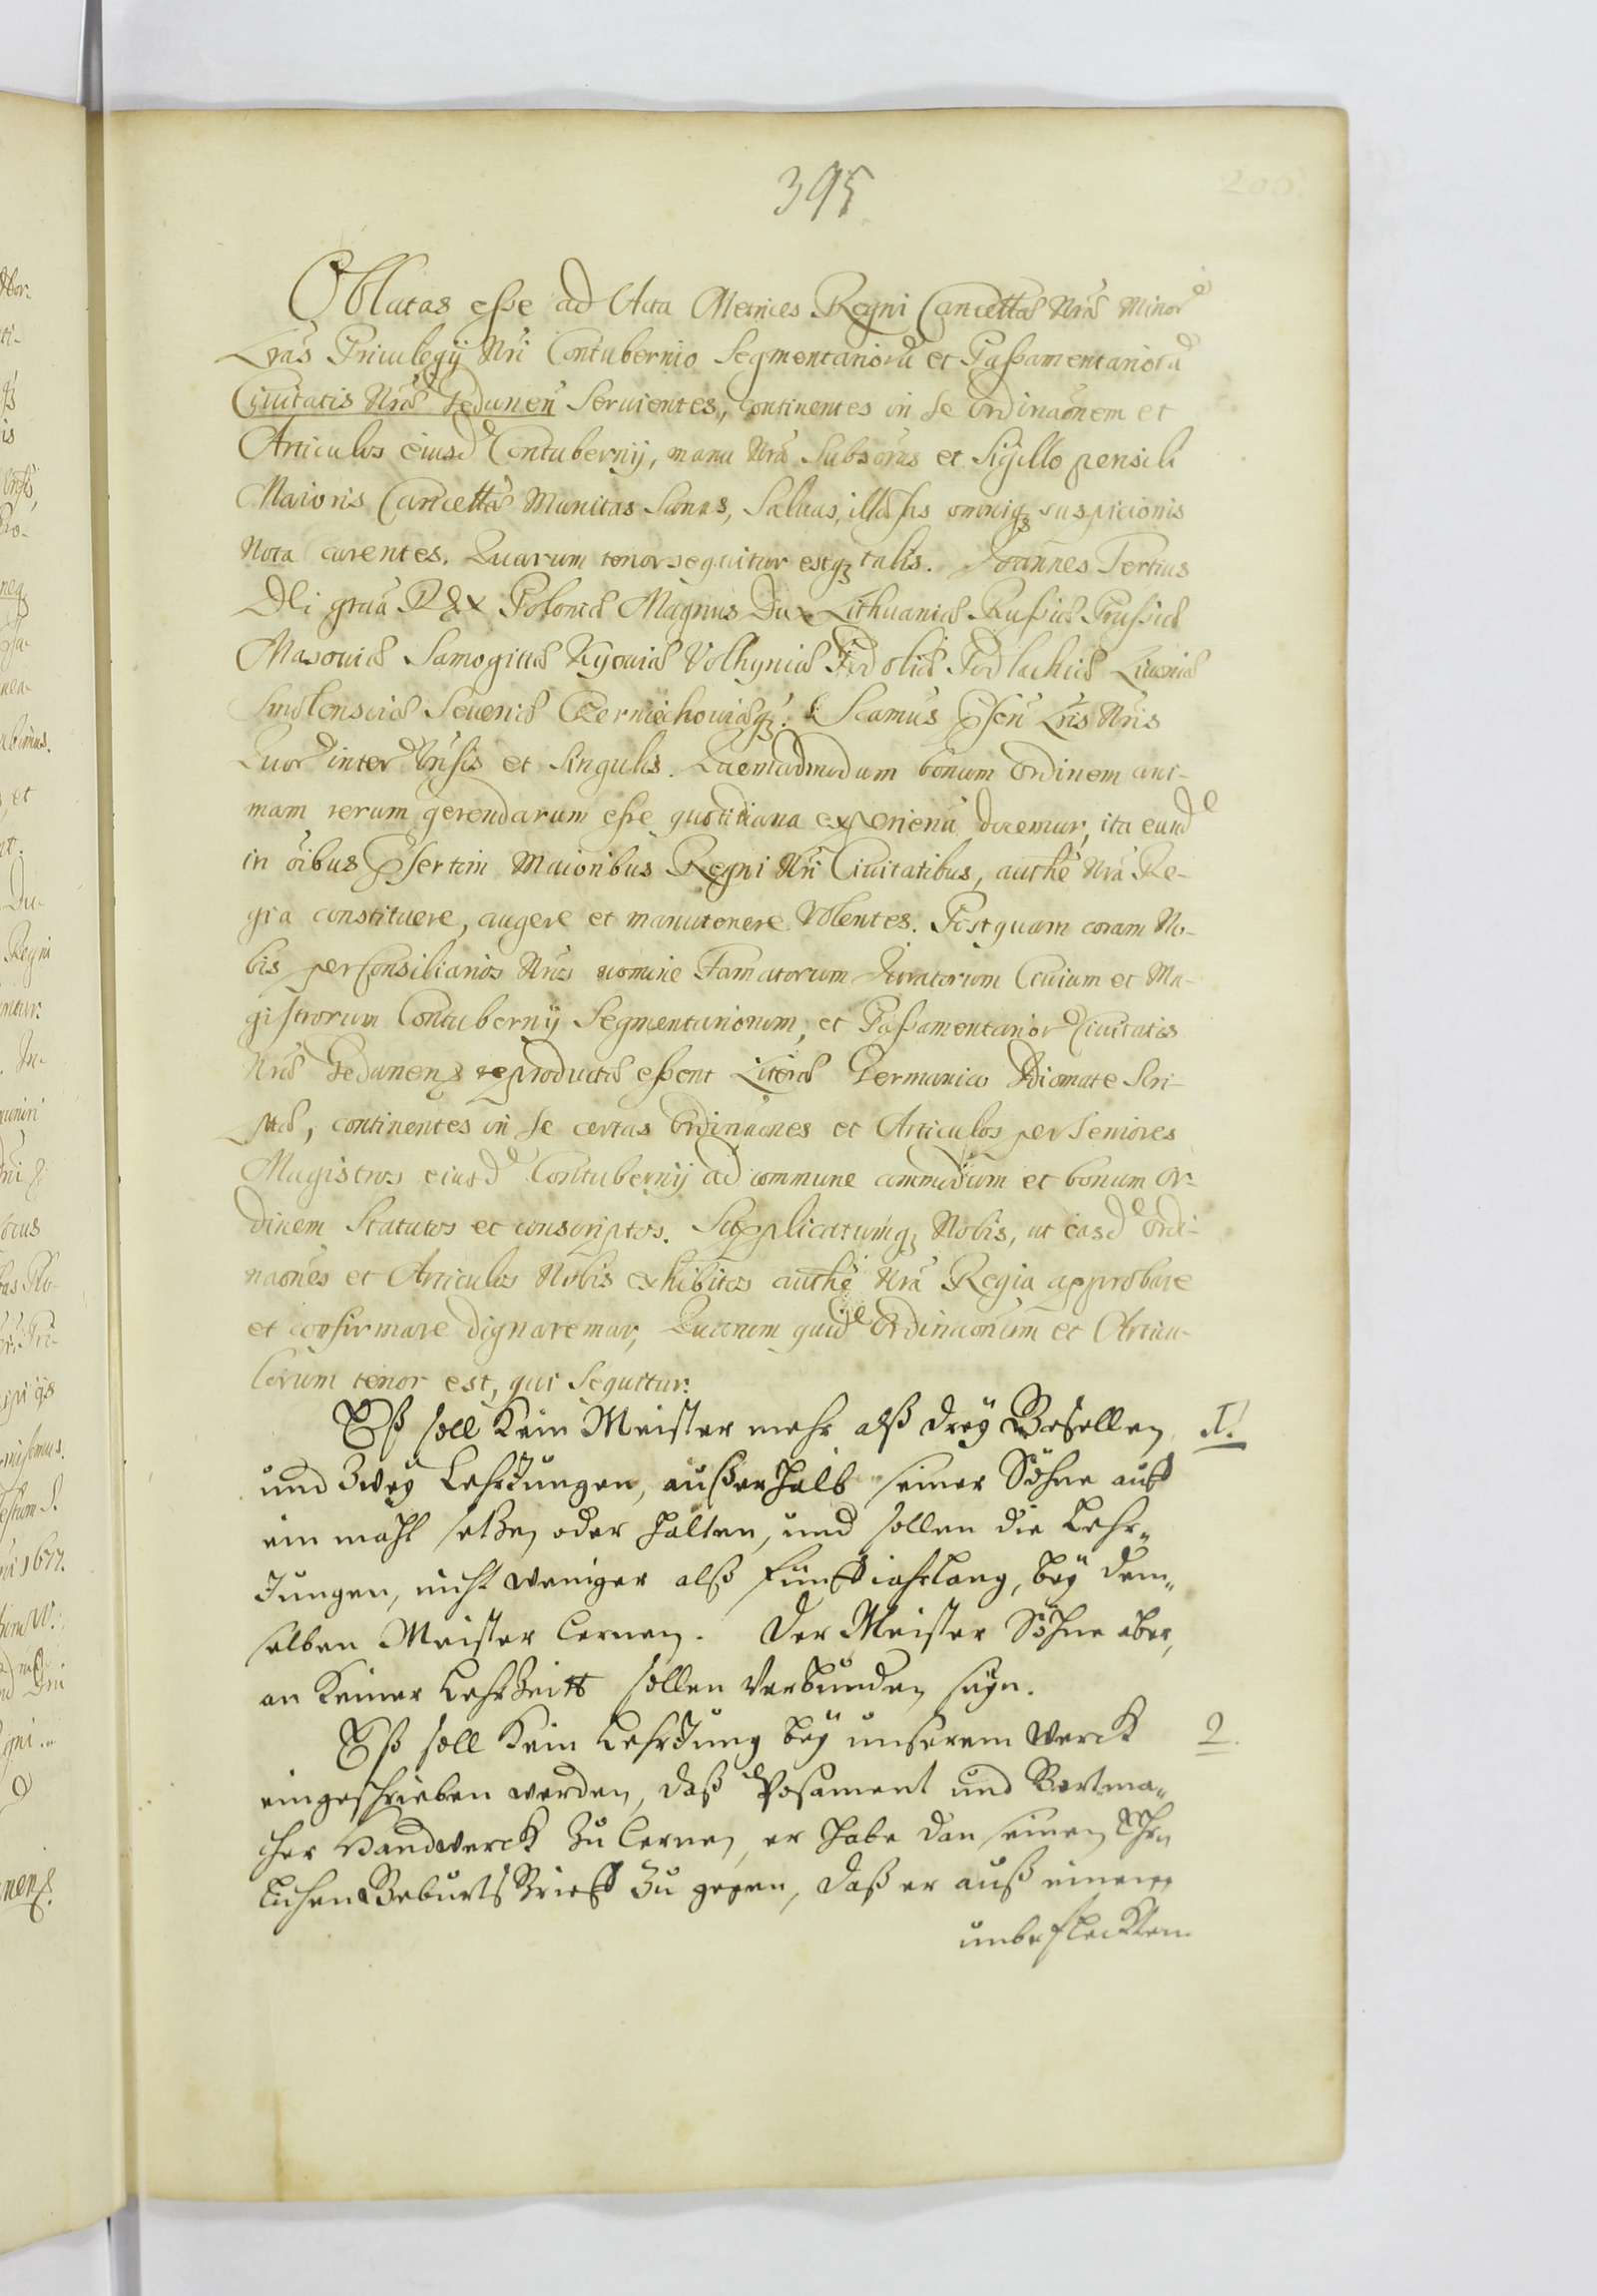 395
206.
Oblatas esse ad Acta Metrices Regni Cancellæ Nræ Minor
Lras Priuilegij Nri Contubernio Segmentariorũ et Passamentariorũ
Ciuitatis Nræ Gedanen Seruientes, continentes in se Ordinaõnem et
Articulos eiusd Contubernij, manu Nrã Subscras et Sigillo pensili
Maioris Cancellæ Munitas Sanas, Saluas, illæsas omniq; suspicionis
Nota carentes. Quarum tenor sequitur estq; talis. Joannes Tertius
Dei graa Rex Poloniæ Magnus Dux Lithuaniæ Russiæ Prussiæ
Masouiæ Samogitiæ Kyouiæ Volhyniæ Podoliæ Podlachiæ Liuoniæ
Smolensciæ Seueriæ Czerniechouiæq;. Scamus Psen Lris Nris
Quor inter Vnisis et Singulis. Quemadmodum bonum Ordinem ani-
mam rerum gerendarum esse quotidiana experiena docemur, ita eund
in oibus Psertim Maioribus Regni Nri Ciuitatibus, authe Nrã Re-
gia constituere, augere et manutenere Volentes. Postquam coram No-
bis per Consiliarios Nros nomine Famatorum Juratorum Ciuium et Ma-
gistrorum Contubernij Segmentariorum, et Passamentarior Ciuitatis
Nræ Gedanens reproductæ essent Literæ Germanico Idiomate Scri-
ptæ, continentes in se certas Ordinaones et Articulos per Seniores
Magistros eiusd Contubernij ad commune commodum et bonum Or-
dinem Statutos et conscriptos. Supplicatumq; Nobis, ut easd Ordi-
naones et Articulos Nobis exhibitos authe Nrã Regia approbare
et confirmare dignaremur, Quarum quid Ordinaonum et Articu-
lorum tenor est, qui Sequitur.
Eß soll Kein Meister mehr alß dreÿ Gesellen
1.
und Zweÿ LehrJungen, außerhalb seiner Söhne auff
ein mahl setzen oder halten, und sollen die Lehr-
Jungen, nicht weniger alß fünff iahrlang, beÿ dem-
selben Meister lernen. Der Meister Söhne aber,
an Keiner LehrZeitt sollen verbunden seÿn.
Eß soll Kein LehrJung beÿ unserem Werck
2.
eingeschrieben werden, daß Posament und Bortma-
cher Handwerck Zu lernen, er habe dan seinen Ehr-
lichen GeburtsBrieff Zu gegen, daß er auß einem
unbeflecktem